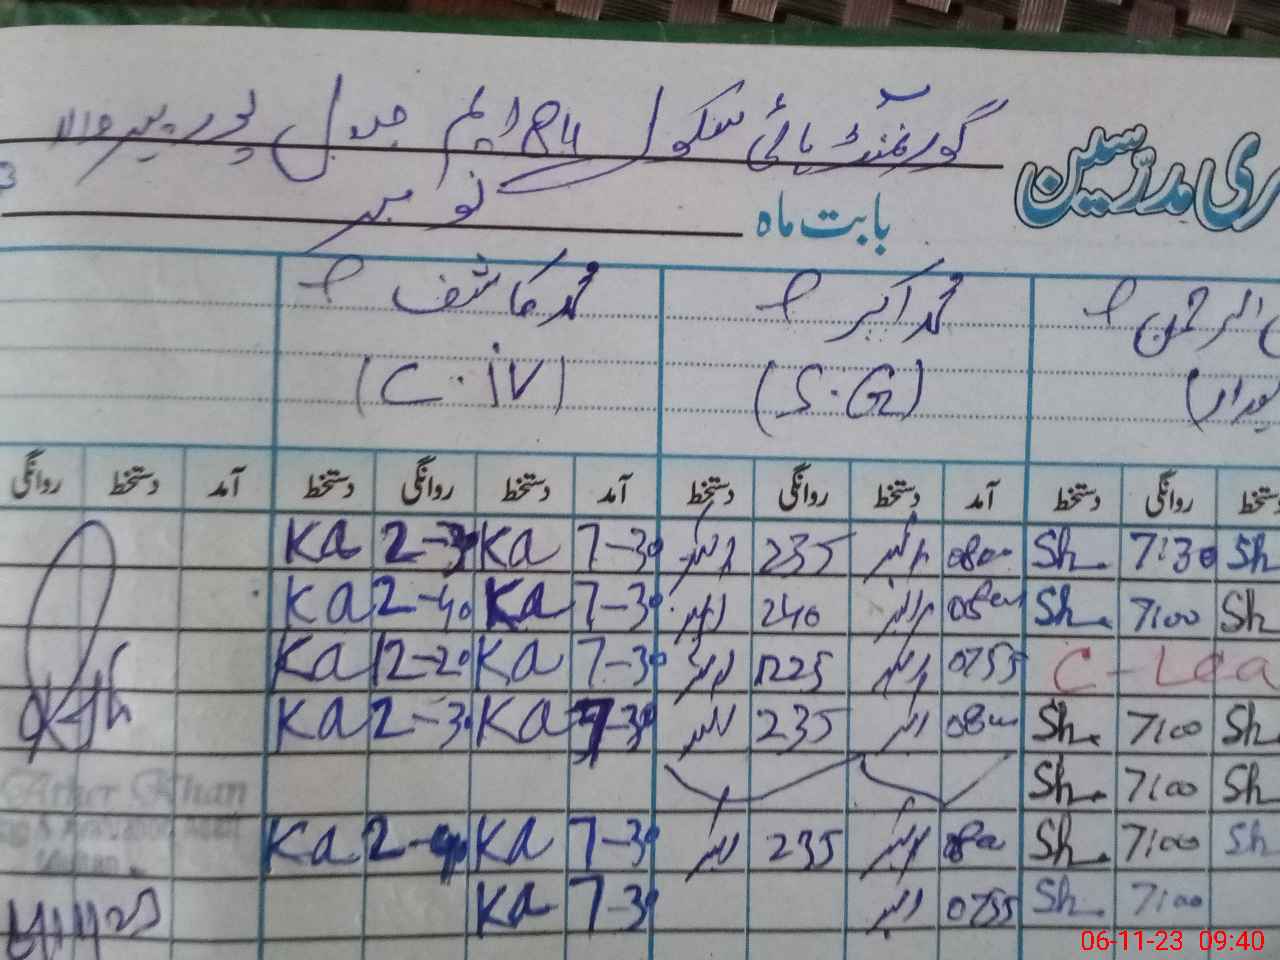 گورنمنٹ ہائی سکول 84 ایم جدول پور پیروالا
ری مدرسین
بابت ماہ نومبر
الرحمن محمد اکبر محمد کاشف
(S.G) (C.IV)
دستخط روانگی دستخط آمد دستخط روانگی دستخط آمد دستخط روانگی دستخط آمد دستخط روانگی
Sh 7:30 Sh. 0800 اکبر 235 اکبر 7-30 Ka 2-30 Ka
Sh 7:00 Sh. 0800 اکبر 240 اکبر 7-30 Ka 2-40 Ka
C-Lea 0755 اکبر 1225 اکبر 7-30 Ka 12-20 Ka
Sh 7:00 Sh. 0800 اکبر 235 اکبر 7-30 Ka 2-30 Ka
Sh 7:00 Sh.
Sh 7:00 Sh. 0800 اکبر 235 اکبر 7-30 Ka 2-40 Ka
7:00 Sh. 0755 اکبر 7-30 Ka
Ather Khan
06-11-23 09:40